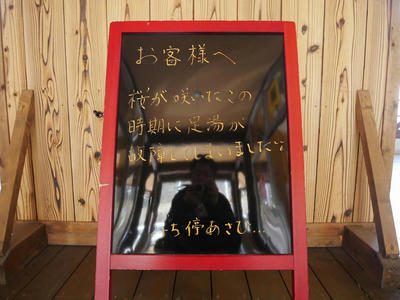 お客様へ
桜が咲いたこの
時期に足湯が
故障してしまいました
ち停あさひ...